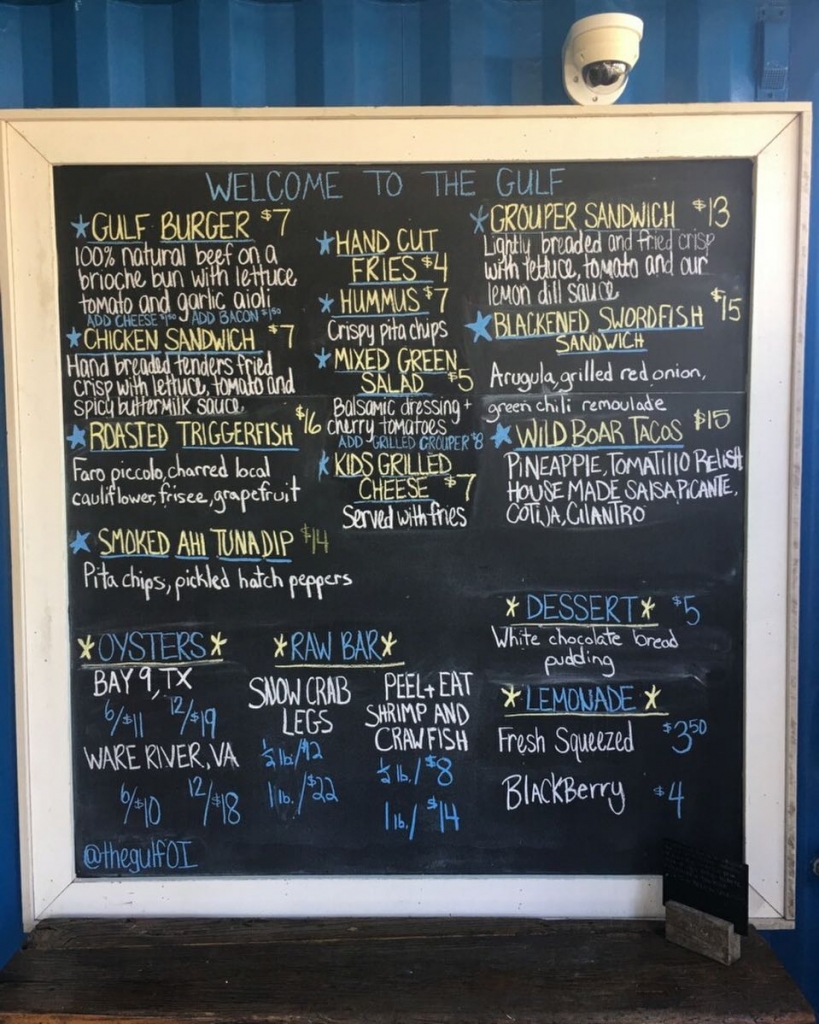 WELCOME TO THE GULF
GULF BURGER $7
100% natural beef on a
brioche bun with lettuce
tomato and garlic aioli
ADD CHEESE ADD BACON
CHICKEN SANDWICH $7
Hand breaded tenders fried
crisp with lettuce, tomato and
spicy buttermilk sauce
ROASTED TRIGGERFISH $16
Faro piccolo, charred local
cauliflower, frisee, grapefruit
SMOKED AHI TUNA DIP $14
Pita chips, pickled hatch peppers
HAND CUT
FRIES $4
HUMMUS $7
Crispy pita chips
MIXED GREEN
SALAD $5
Balsamic dressing +
cherry tomatoes
ADD GRILLED GROUPER $8
KIDS GRILLED
CHEESE $7
Served with fries
GROUPER SANDWICH $13
Lightly breaded and fried crisp
with lettuce, tomato and our
lemon dill sauce
BLACKENED SWORDFISH $15
SANDWICH
Arugula, grilled red onion,
green chili remoulade
WILD BOAR TACOS $15
PINEAPPLE, TOMATILLO RELISH
HOUSE MADE SALSA PICANTE,
COTIJA, CILANTRO
OYSTERS
BAY 9, TX
6/$11 12/$19
WARE RIVER, VA
6/$10 12/$18
@thegulfOI
RAW BAR
SNOW CRAB
LEGS
½ lb./$12
1 lb./$22
PEEL + EAT
SHRIMP AND
CRAWFISH
½ lb./$8
1 lb./$14
DESSERT $5
White chocolate bread
pudding
LEMONADE
Fresh Squeezed $3.50
BlackBerry $4